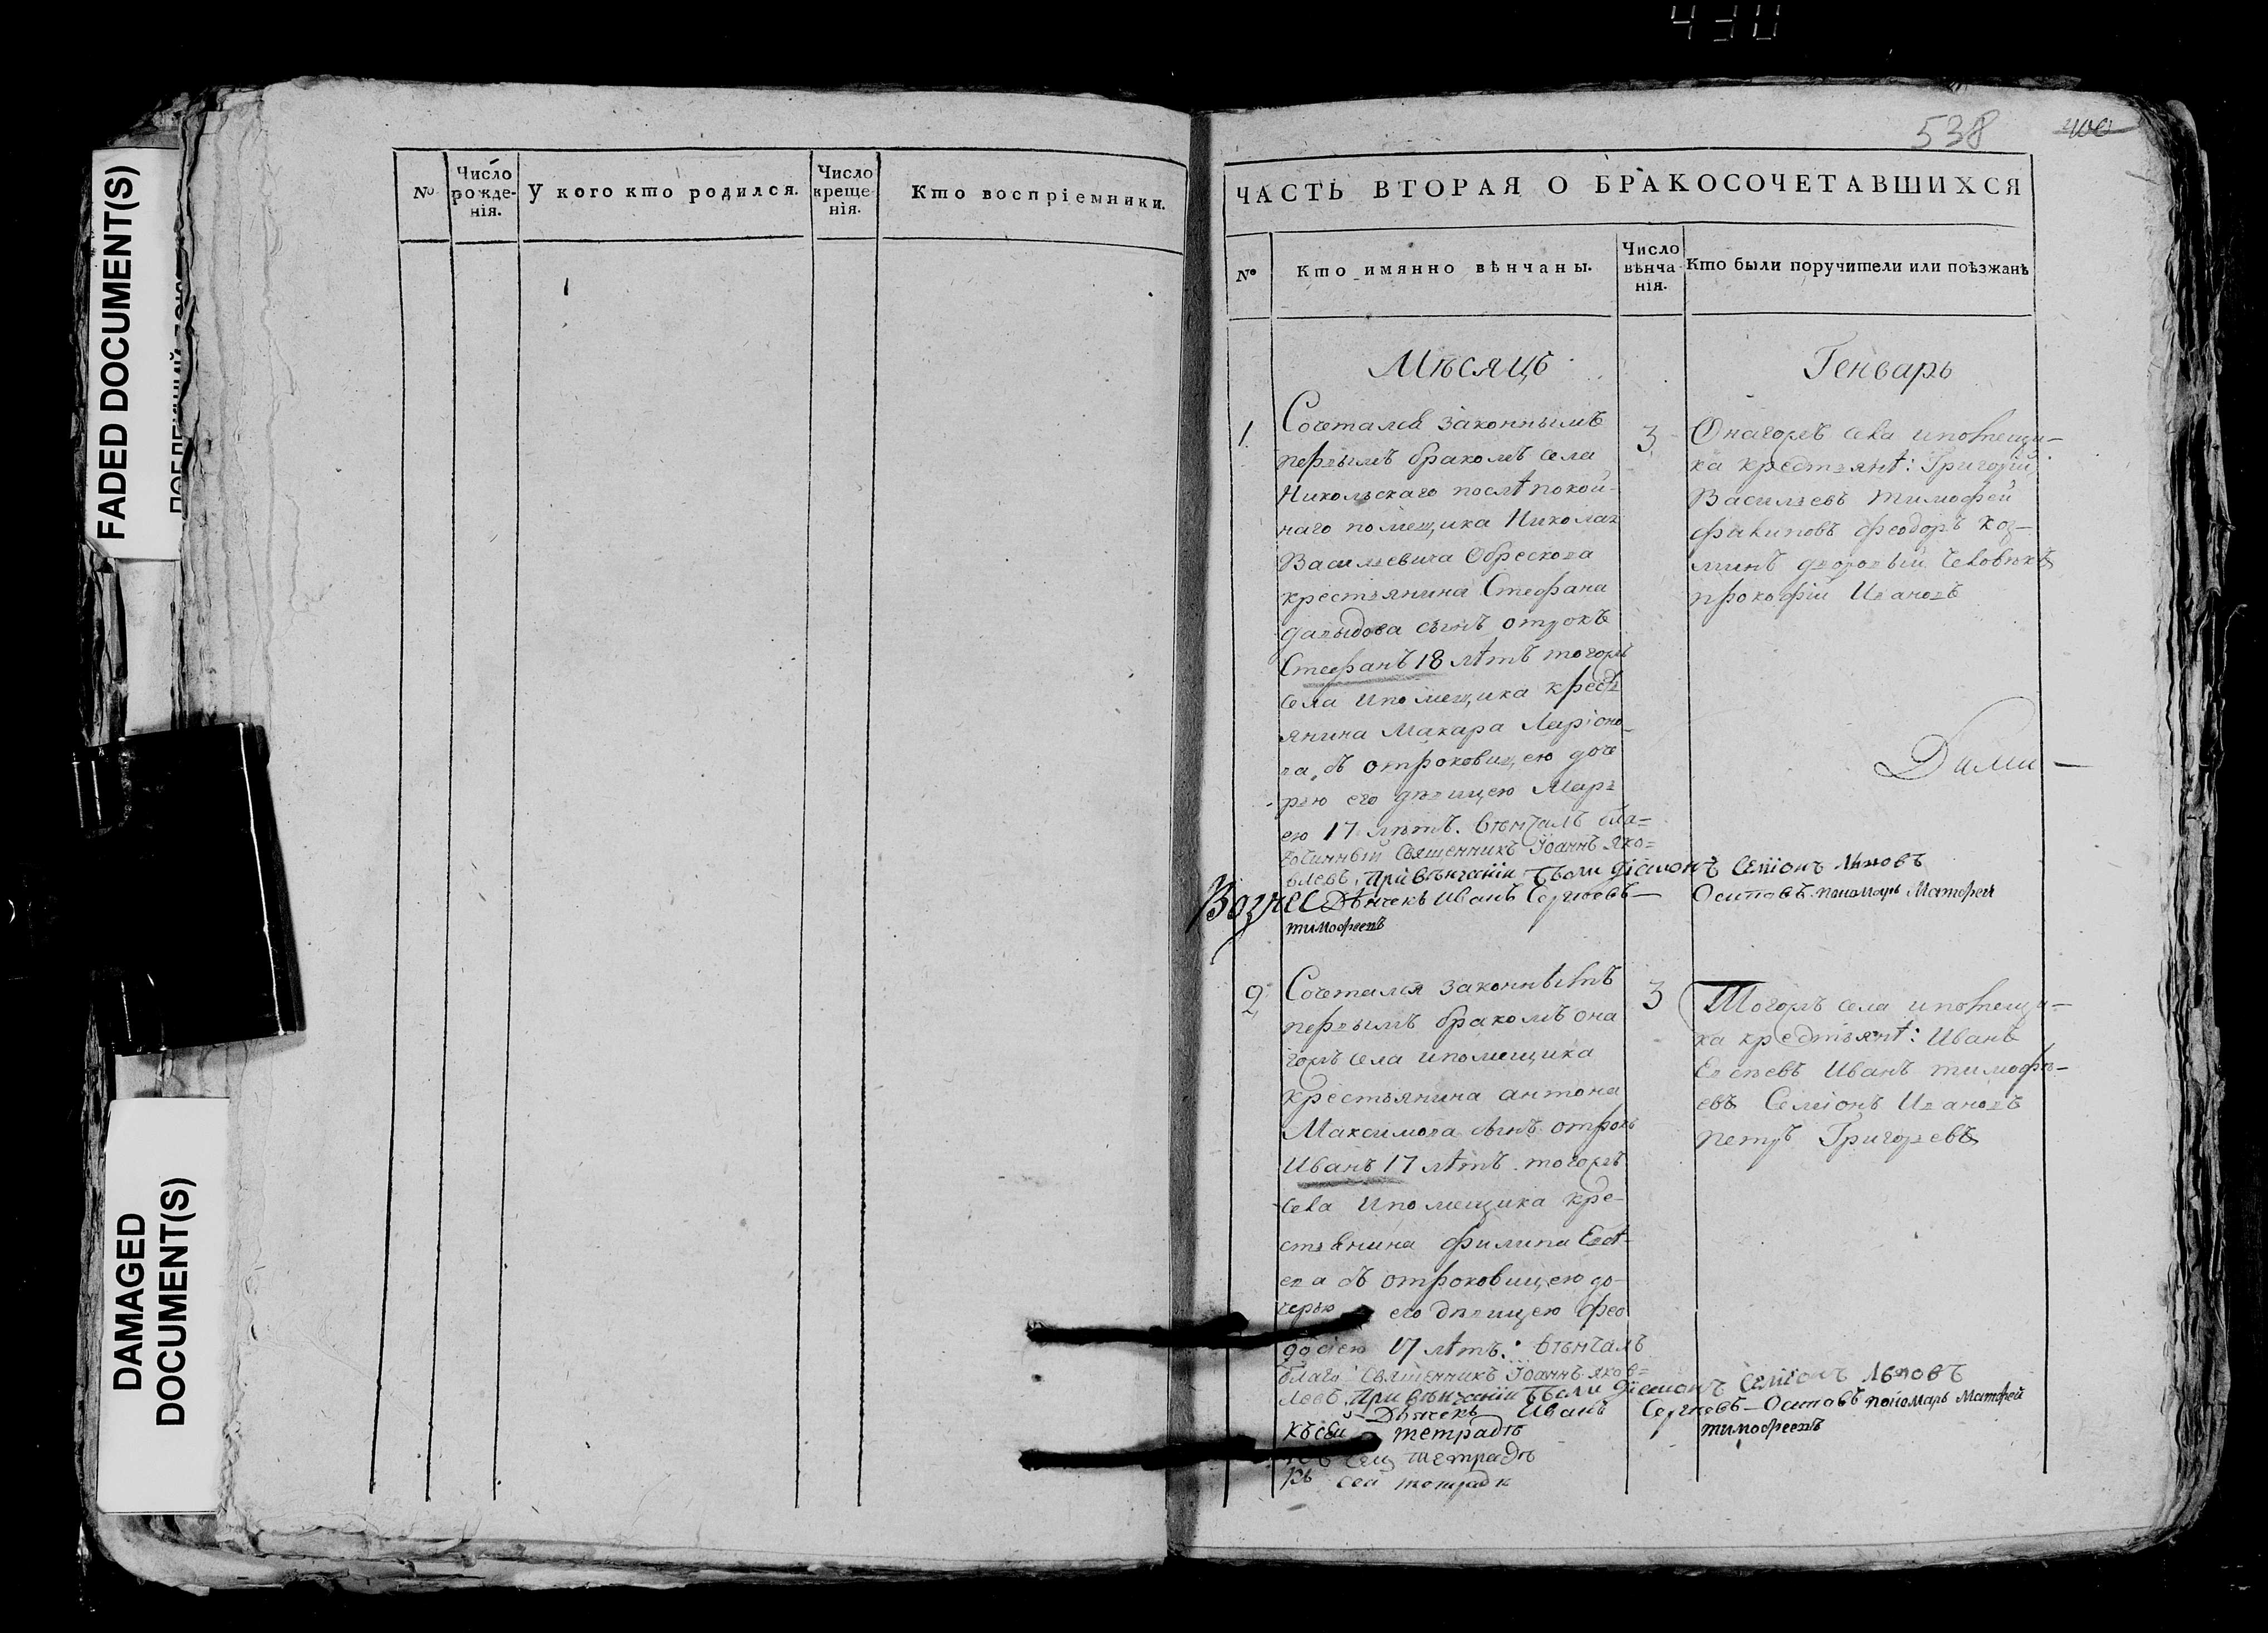 430
FADED DOCUMENT(S)
DAMAGED
DOCUMENT(S)
№
Число
рожде-
нія.
У кого кто родился.
Число
креще-
нія.
Кто воспріемники.
538
400
ЧАСТЬ ВТОРАЯ О БРАКОСОЧЕТАВШИХСЯ
№
Кто имянно вѣнчаны.
Число
вѣнча
нія.
Кто были поручители или поѣзжанѣ
Мѣсяцъ
Генварь
1.
Сочетался законнымъ
первымъ бракомъ села
Никольскаго послѣ покой-
наго помещика Николая
Васильевича Обрескова
крестьянина Стефана
давыдова сынъ отрокъ
Стефанъ 18 лѣтъ тогожъ
села ипомещика крест
янина Макара Ларіоно-
ва, съ отроковицею доче
рью его дѣвицею Марь
ею 17 лѣтъ. вѣнчалъ бла=
гочинный Священникъ Іоаннъ Яко=
влевъ, при вѣнчаніи были діаконъ Семіонъ Львовъ
Дьячекъ Иванъ Сергѣевъ— Осиповъ пономарь Матфей
тимофеевъ
3
Онагожъ села ипомещи-
ка крестьянѣ: Григорій
Васильевъ тимофей
филиповъ феодоръ коз-
минъ дворовый человѣкъ
прокофій Ивановъ
Вознес
2
Сочетался законнымъ
первымъ бракомъ она
гожъ села ипомещика
крестьянина антона
Максимова сынъ отрокъ
Иванъ 17 лѣтъ тогожъ
села ипомещика кре-
стьянина филипа Евсѣ-
ева съ отроковицею до-
черью его дѣвицею фео
досіею 17 лѣтъ: вѣнчалъ
благо Священникъ Іоаннъ Яков=
левъ, при вѣнчаніи были діаконъ Семіонъ Львовъ
Дьячекъ Иванъ Сергѣевъ—Осиповъ пономарь Матфей
тимофеевъ
3
Тогожъ села ипомещи=
ка крестьянѣ: Иванъ
Евсѣевъ Иванъ тимофѣ-
евъ Семіонъ Ивановъ
петръ Григорьевъ
къ сей тетрадѣ
сей тетрадѣ
къ сей тетрадѣ